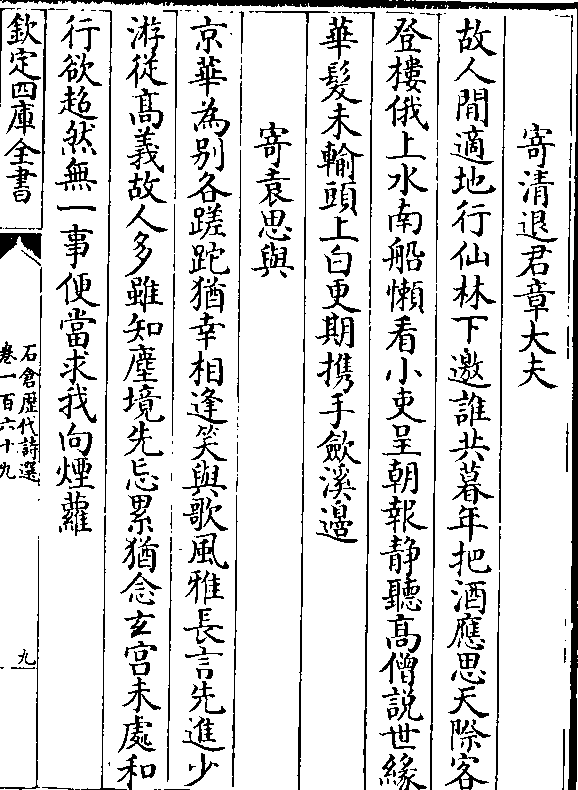 寄清退君章大夫
故人閒適地行仙林下邀誰共暮年把酒應思天際客
登樓俄上水南船懶看小吏呈朝報静聽高僧説世緣
華髮未輸頭上白更期攜手歙溪邉
寄袁思與
京華為别各蹉跎猶幸相逢笑與歌風雅長言先進少
游從髙義故人多雖知塵境先忘累猶念玄宫未處和
行欲超然無一事便當求我向煙蘿
欽定四庫全書
石倉歷代詩選
卷一百六十九
九